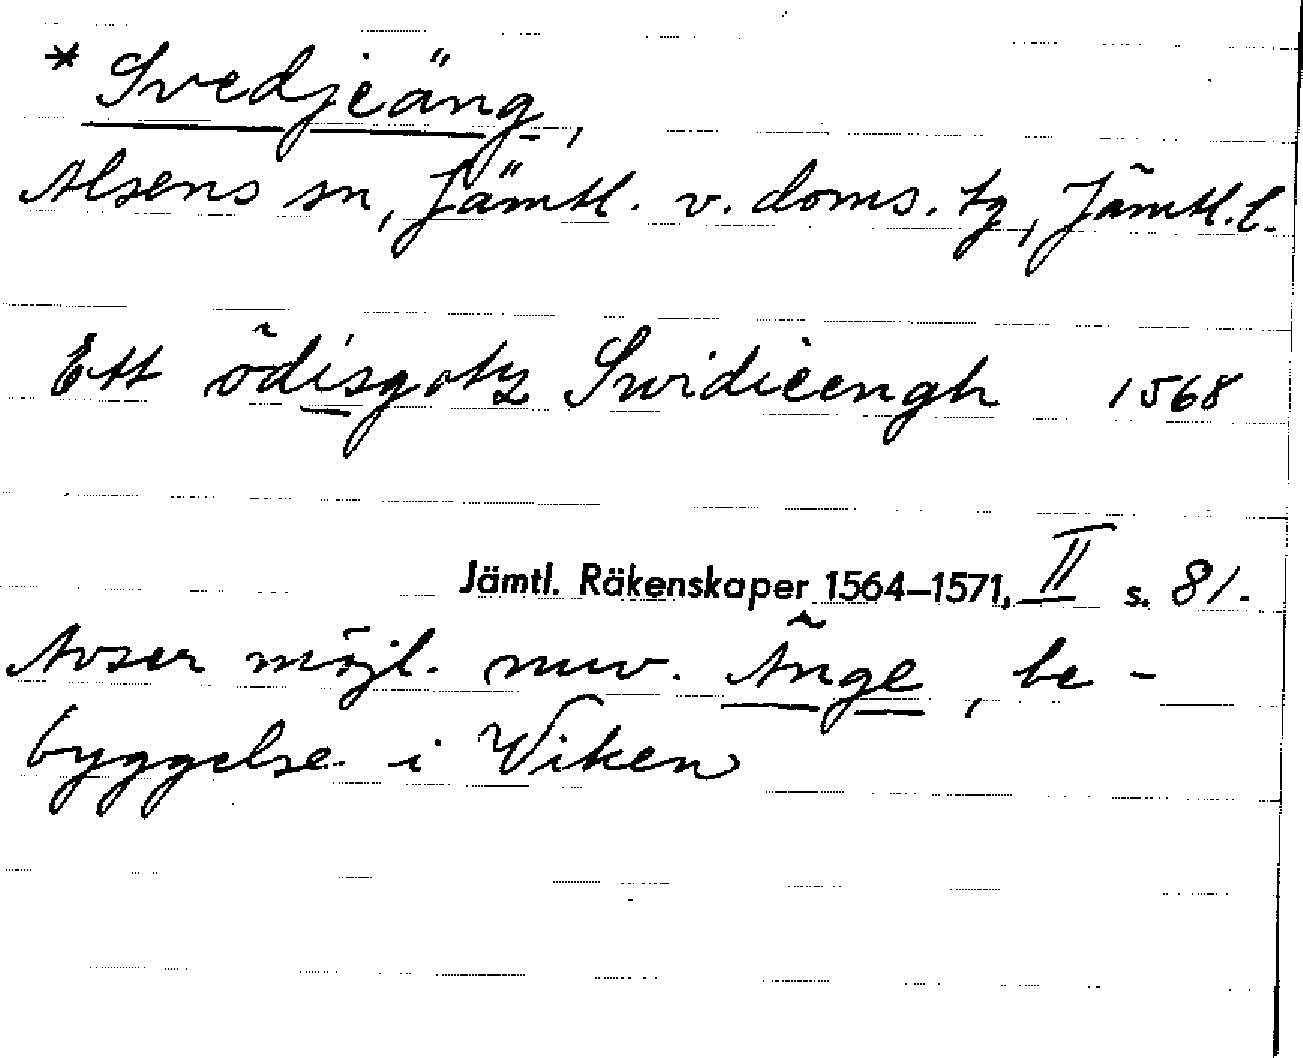 * Svedjeäng,
Alsens sn, Jämtl. v. doms. tg, Jämtl. l.
Ett ödisgotz Swidieengh 1568
Jämtl. Räkenskaper 1564–1571, II s. 81.
Avser möjl. nuv. Änge, be-
byggelse i Viken